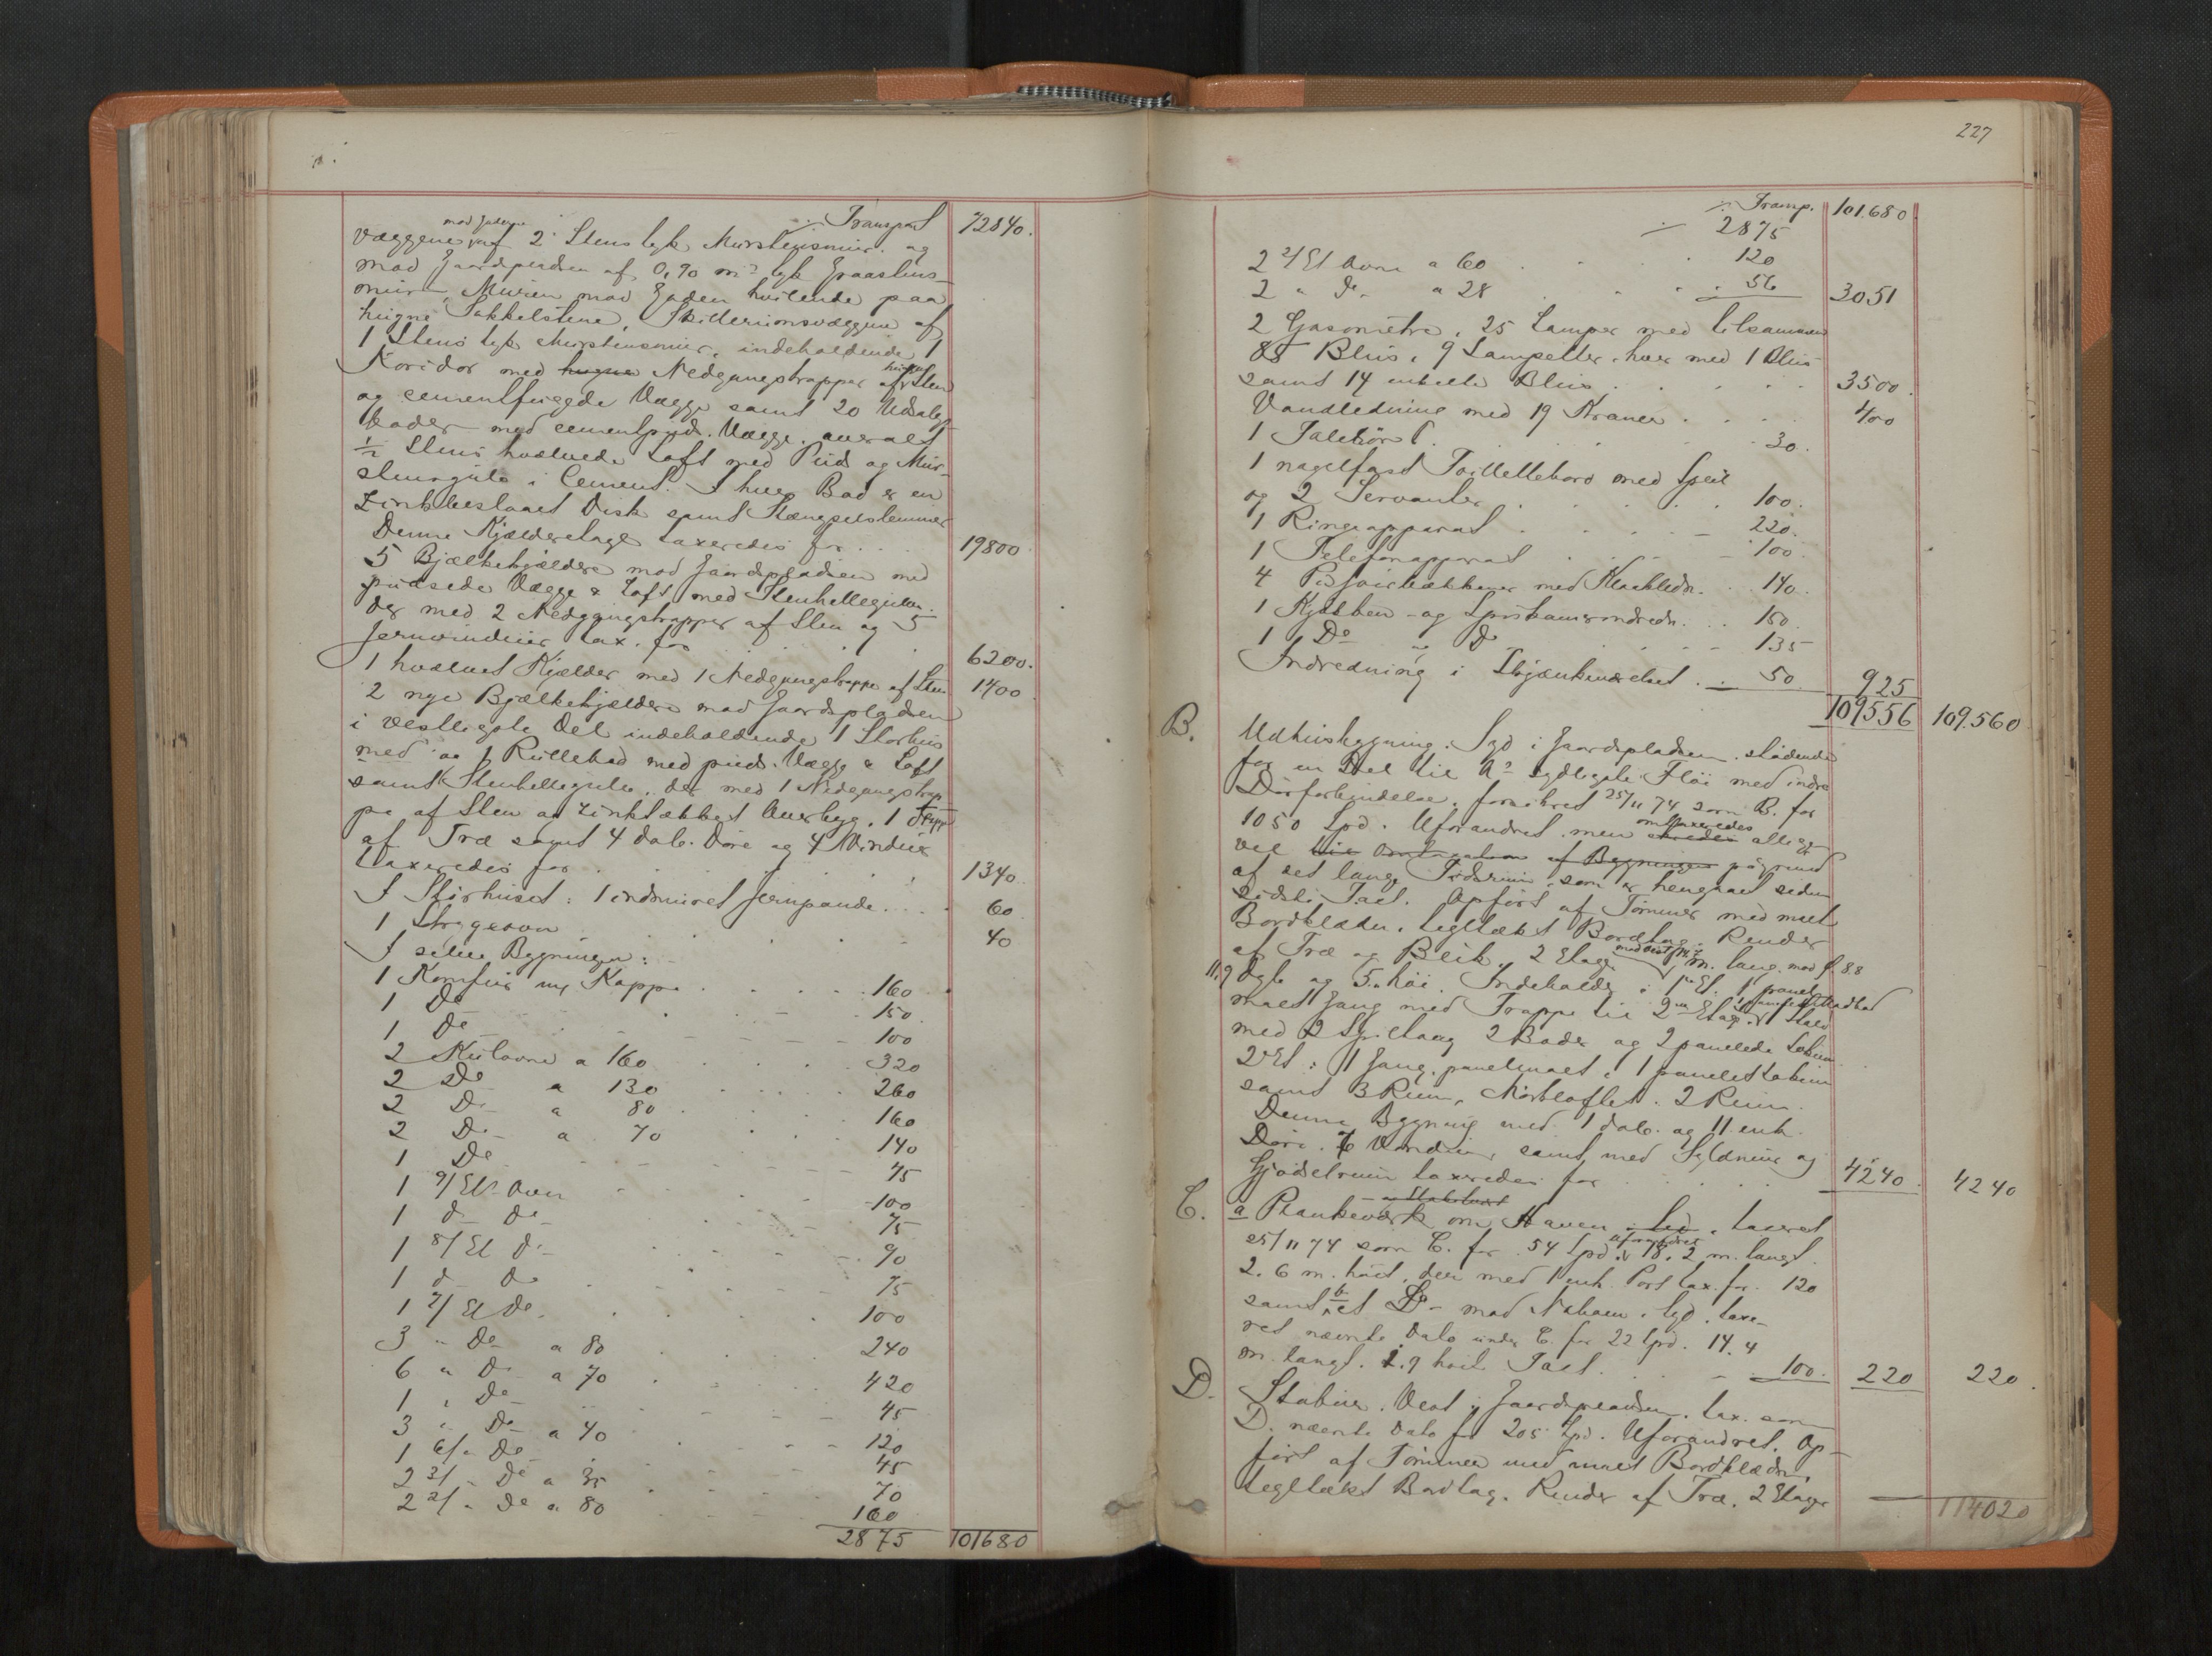 Transport 72840.
væggene mod Gaden af 2 Stens tyk Murstensmur og
mod Gaardspladsen af 0,90 m tyk Graastens-
mur, Muren mod Gaden hvilende paa
hugne Sokkelstene, Skillerumsvæggene af
1 Stens tyk Murstensmur, indeholdende 1
Koridor med hugne Nedgangstrapper af hugne Sten
og cementfugede Vægge samt 20 Udsalgs-
boder med cementpuds. Vægge, overalt
1/2 Stens hvælvede Loft med Puds og Mur-
stensgulv i Cement. I hver Bod er en
Zinkbeslaaet Disk samt Stængselslemmer
Denne Kjælderetage taxeredes for . . . 19800
5 Bjælkekjældere mod Gaardspladsen med
pudsede Vægge & Loft med Stenhellegulv.
Der med 2 Nedgangstrapper af Sten og 5
Jernvinduer tax. for . . . 6200.
1 hvælvet Kjælder med 1 Nedgangstrappe af Sten 1400
2 nye Bjælkekjældere mod Gaardspladsen
i vestligste Del indeholdende 1 Størhus
med og 1 Rullebod med puds. Vægge & Loft
samt Stenhellegulv. Der med 1 Nedgangstrap-
pe af Sten og Zinktækket Overbyg, 1 Trappe
af Træ samt 4 dob. Døre og 4 Vinduer
taxeredes for . . . 1340
I Størhuset: 1 indmuret Jernpande . . . 60
1 Strygeovn . . . 40
I selve Bygningen:
1 Komfur m/ Kappe . . . 160
1 Do . . . 150
1 Do . . . 100
2 Kulovne a 160 . . . 320
2 Do a 130 . . . 260
2 Do a 80 . . . 160
2 Do a 70 . . . 140
1 Do . . . 45
1 9/Et. Ovn . . . 100
1 d Do . . . 75
1 8/Et Do . . . 90
1 d Do . . . 75
1 7/Et Do . . . 100
3 " Do a 80 . . . 240
6 " Do a 70 . . . 420
1 " Do . . . 45
3 " Do a 40 . . . 120
1 6/" Do . . . 45
2 3/" Do a 35 . . . 70
2 2/" Do a 80 . . . 160
2875 101680
227
Transp. 101.680
2875
2 2/Et Ovne a 60 . . . 120
2 " Do a 28 . . . 56 3051
2 Gasometre, 25 Lamper med tilsammen
85 Blus, 9 Lampetter hver med 1 Blus
samt 14 enkelte Blus . . . 3500
Vandledning med 19 Kraner . . . 400
1 Talerør . . . 30.
1 nagelfast Toilettebord med Speil
og 2 Servanter . . . 100.
1 Ringeapparat . . . 220.
1 Telefonapparat . . . 100.
4 Pissoirbækkener med Kloakledn. . . 140.
1 Kjøkken- og Spiskamerindredn. . . 150.
1 Do " D . . . 135
Indredning i Skjænkeværelset . . 50. 925
109556 109.560
B. Udhusbygning. Syd i Gaardspladsen. stødende
for en Del til A's sydligste Fløi med indre
Dørforbindelse, forsikret 25/11 74 som B. for
1050 Spd. Uforandret men omtaxeredes allige-
vel til Omtaxation af Bygningen pågrund
af det lange Tidsrum, som er hengaaet siden
sidste Taxt. Opført af Tømmer med malt
Bordklædn. tegltækt Bordtag. Render
af Træ og Blik. 2 Etager m. lang mod S 8.8
11.9 Dyb og 5. høi. Indeholder i 1ste Et. 1 panel-
malet Gang med Trappe til 2den Etage, 1 Stald
med 2 Spiltoug 2 Boder og 2 panelede
2 Et: 1 Gang panelmalet, 1 panelet
samt 3 Rum, Mørkloftet. 2 Rum.
Denne Bygning med 1 dob. og 11 enk.
Døre. 6 Vinduer samt med Syldmur og
Gjødselrum taxeredes for . . . 4240. 4240
C. a Plankeværk om Haven taxeret
25/11 74 som C. for 54 Spd. uforandret 18.2 m. langt
2.6 m. høit, der med 1 enk. Port tax. for. 120
samt b et Do mod Naboen i Syd. taxe-
ret nævnte Dato under C. for 22 Spd. 14.4
m. langt. 1.9 høit Taxt. . . . 100. 220 220.
D. Stabur. Vest i Gaardspladsen. tax. som
D. nævnte Dato for 205 Spd. Uforandret. Op-
ført af Tømmer med malt Bordklædn,
tegltækt Bordtag. Render af Træ. 2 Etager
114020